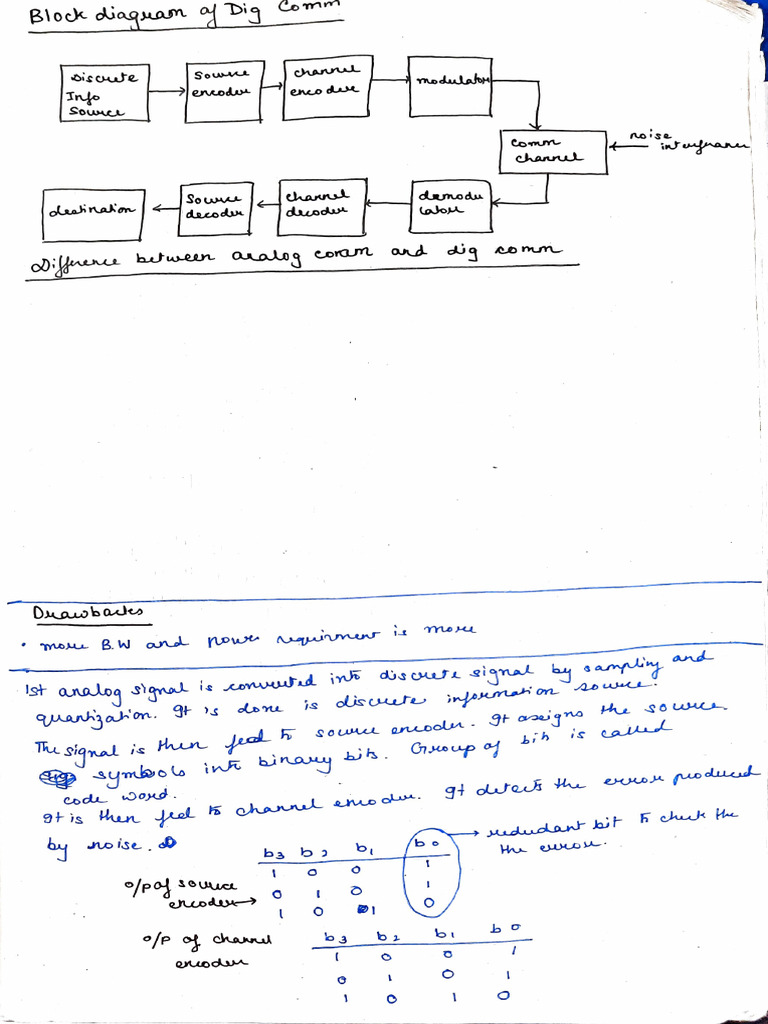 Block diagram of Dig Comm
Discrete
Info
Source
Source
encoder
channel
encoder
modulator
comm
channel
noise
interference
destination
Source
decoder
channel
decoder
demodu
lator
Difference between analog comm and dig comm
Drawbacks
• more B.W and power requirment is more
1st analog signal is converted into discrete signal by sampling and
quantization. It is done is discrete information source.
The signal is then feed to source encoder. It assigns the source
symbols into binary bits. Group of bits is called
code word.
It is then feed to channel encoder. It detects the error produced
by noise.
b3 b2 b1 b0 → redudant bit to check the
the error.
1 0 0 1
o/p of source
encoder →
0 1 0 1
1 0 1 0
o/p of channel
encoder
b3 b2 b1 b0
1 0 0 1
0 1 0 1
1 0 1 0